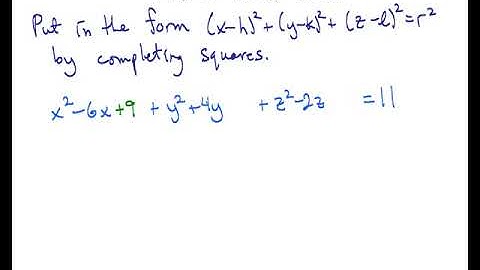 Put in the form (x-h)²+(y-k)²+(z-l)²=r²
by completing squares.
x²-6x+9 + y²+4y + z²-2z = 11